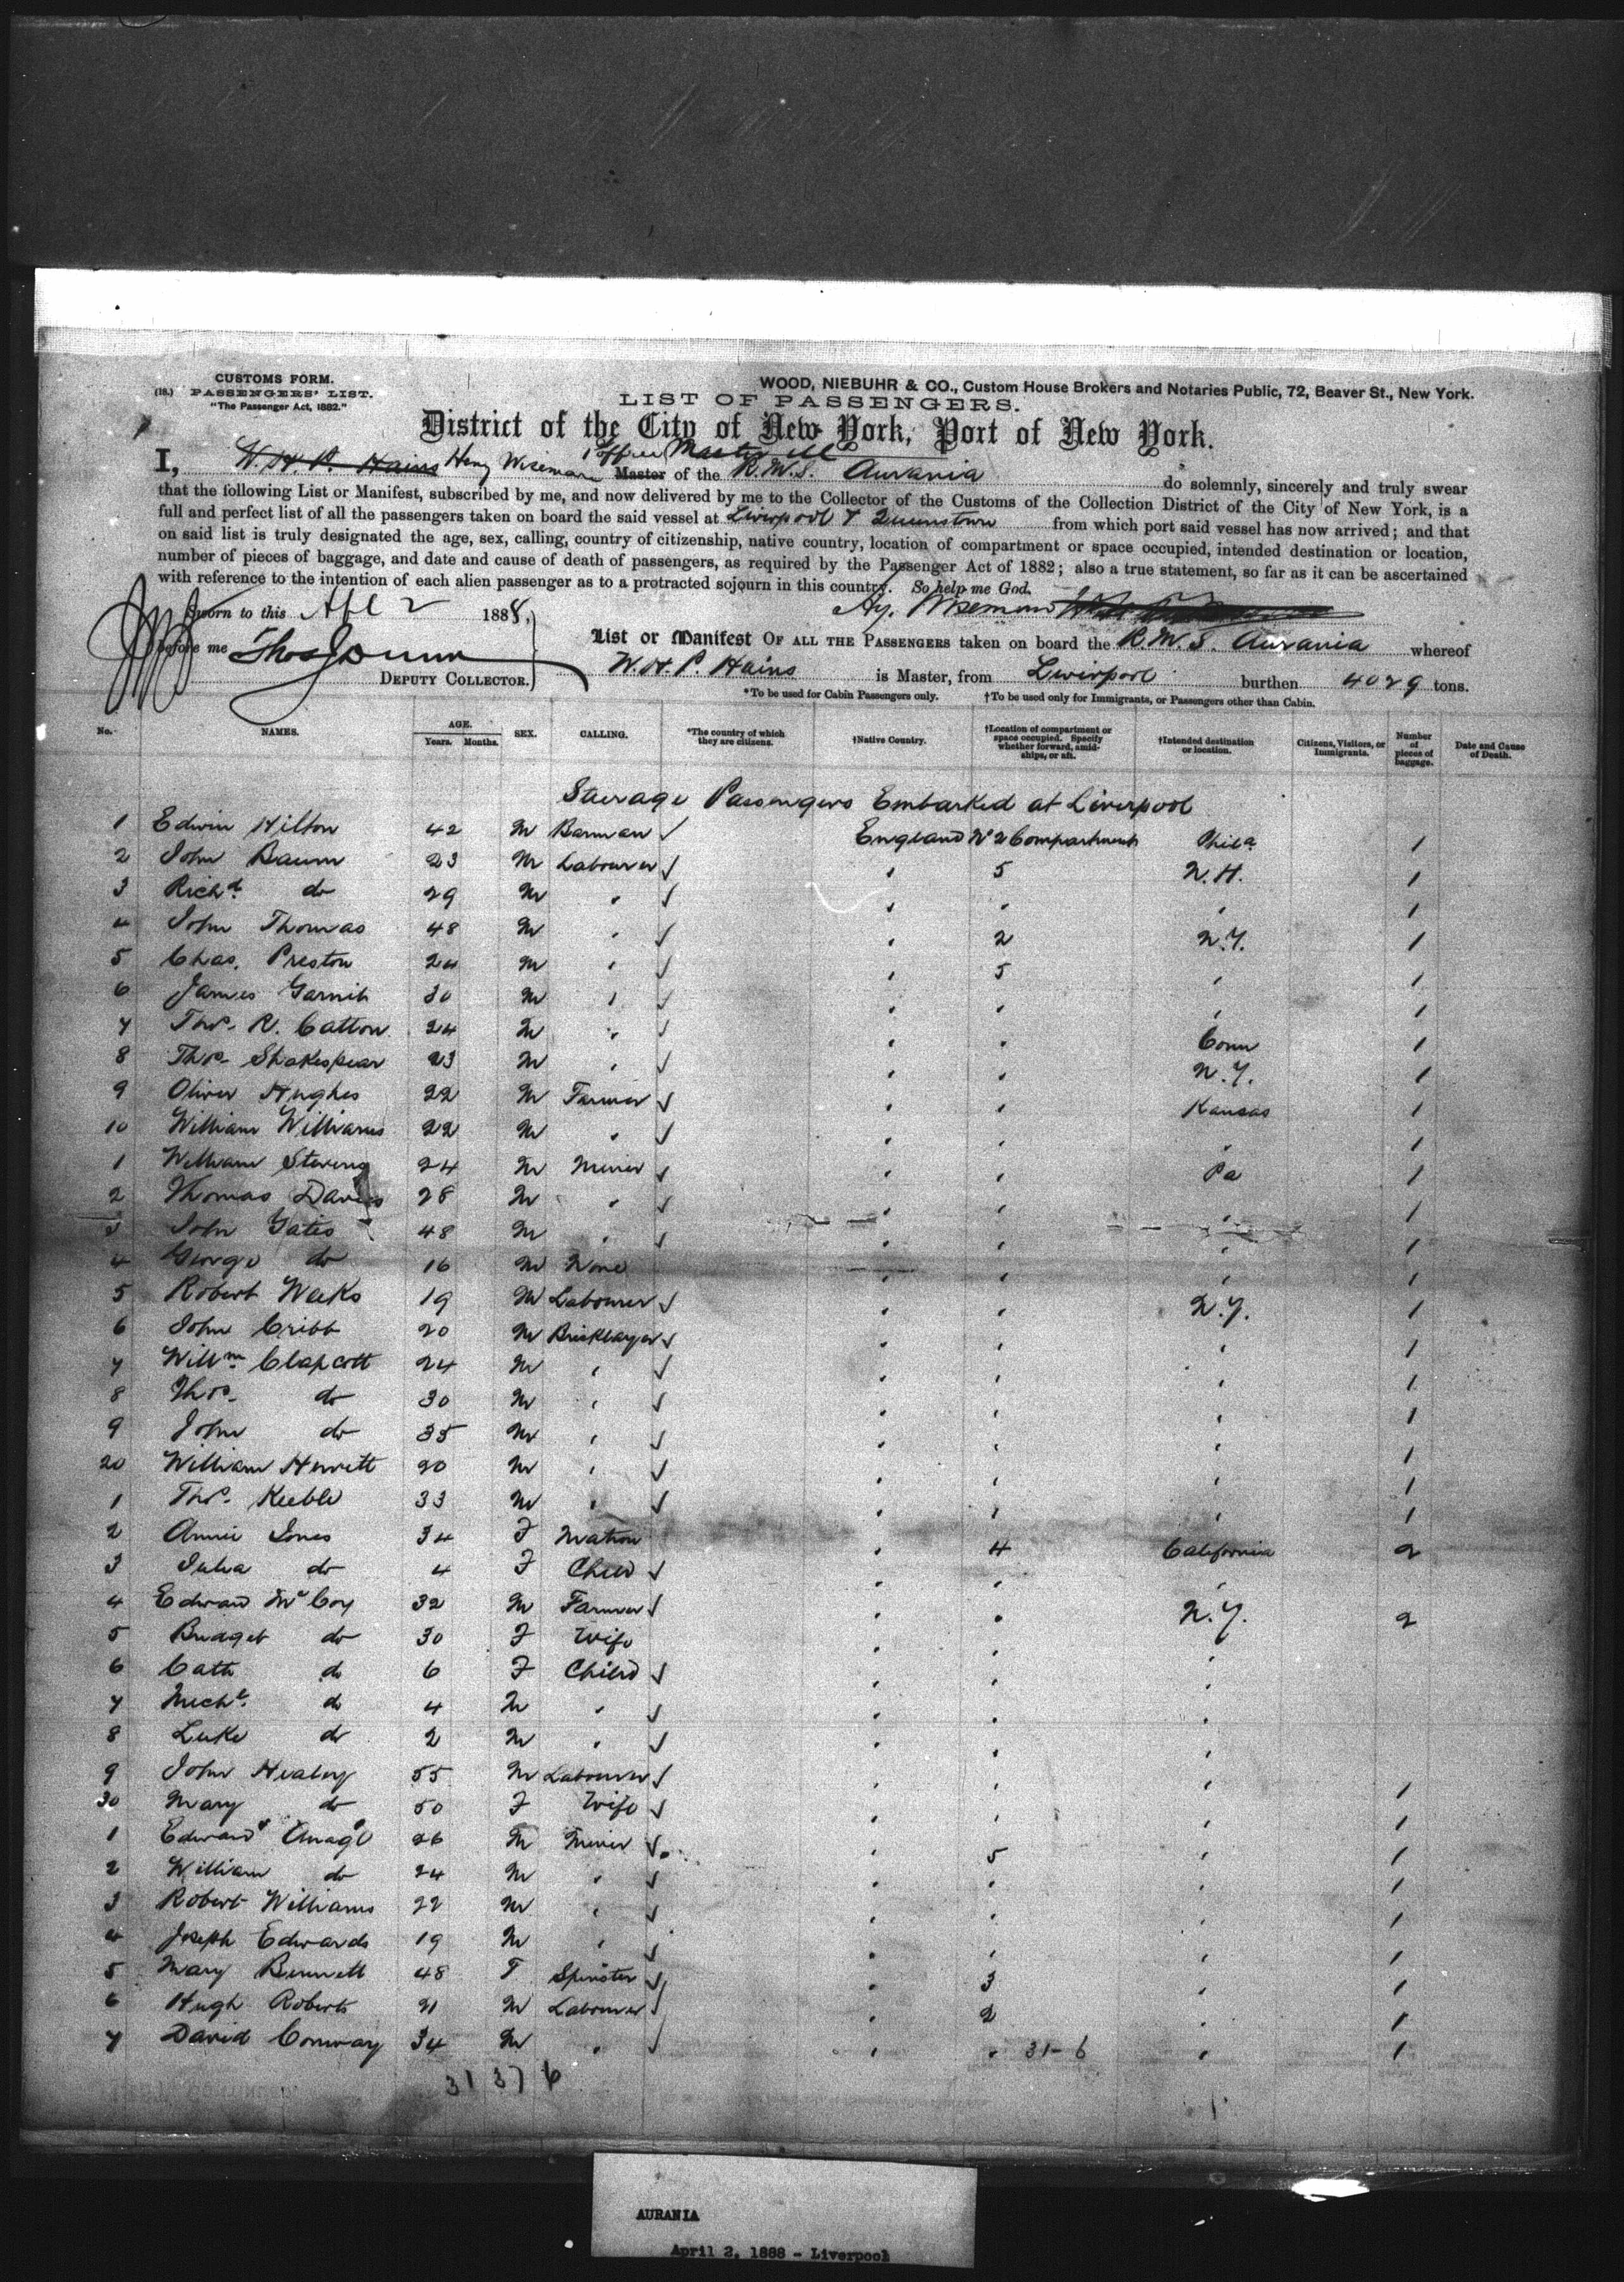 CUSTOMS FORM.
(18.) PASSENGERS' LIST.
"The Passenger Act, 1882."
WOOD, NIEBUHR & CO., Custom House Brokers and Notaries Public, 72, Beaver St., New York.
LIST OF PASSENGERS.
District of the City of New York, Port of New York.
I, W. H. P. Hains Henry Wiseman 1 Officer Master ill Master of the R.M.S. Aurania do solemnly, sincerely and truly swear
that the following List or Manifest, subscribed by me, and now delivered by me to the Collector of the Customs of the Collection District of the City of New York, is a
full and perfect list of all the passengers taken on board the said vessel at Liverpool & Queenstown from which port said vessel has now arrived; and that
on said list is truly designated the age, sex, calling, country of citizenship, native country, location of compartment or space occupied, intended destination or location,
number of pieces of baggage, and date and cause of death of passengers, as required by the Passenger Act of 1882; also a true statement, so far as it can be ascertained
with reference to the intention of each alien passenger as to a protracted sojourn in this country. So help me God.
Sworn to this Apl 2 1888,
Hy. Wiseman
before me Thos J Dunn
DEPUTY COLLECTOR.
List or Manifest OF ALL THE PASSENGERS taken on board the R.M.S. Aurania whereof
W. H. P. Hains is Master, from Liverpool burthen 4029 tons.
*To be used for Cabin Passengers only. †To be used only for Immigrants, or Passengers other than Cabin.
No. NAMES. AGE. Years. Months. SEX. CALLING. *The country of which they are citizens. †Native Country. †Location of compartment or space occupied. Specify whether forward, amidships, or aft. †Intended destination or location. Citizens, Visitors, or Immigrants. Number of pieces of baggage. Date and Cause of Death.
Steerage Passengers Embarked at Liverpool
1 Edwin Hilton 42 M Barman England No 2 Compartment Phila 1
2 John Baum 23 M Labourer " 5 N.H. 1
3 Richd do 29 M " " " " 1
4 John Thomas 48 M " " 2 N.Y. 1
5 Chas. Preston 24 M " " 5 " 1
6 James Garnib 30 M " " " " 1
7 Thos. R. Catton 24 M " " " Conn 1
8 Thos Shakespear 23 M " " " N.Y. 1
9 Oliver Hughes 22 M Farmer " " Kansas 1
10 William Williams 22 M " " " " 1
1 William Stevens 24 M Miner " " Pa 1
2 Thomas Davies 28 M " " " " 1
3 John Gates 48 M " " " " 1
4 George do 16 M None " " " 1
5 Robert Weeks 19 M Labourer " " N.Y. 1
6 John Cribb 20 M Bricklayer " " " 1
7 Willm Clapcott 24 M " " " " 1
8 Thos. do 30 M " " " " 1
9 John do 35 M " " " " 1
20 William Hewett 20 M " " " " 1
1 Thos. Keeble 33 M " " " " 1
2 Annie Jones 34 F Matron " 4 California 2
3 Julia do 4 F Child " " "
4 Edward McCoy 32 M Farmer " " N.Y. 2
5 Bridget do 30 F Wife " " "
6 Cath do 6 F Child " " "
7 Michl. do 4 M " " " "
8 Luke do 2 M " " " "
9 John Healey 55 M Labourer " " " 1
30 Mary do 50 F Wife " " " 1
1 Edward 26 M Miner " 5 " 1
2 William do 24 M " " " " 1
3 Robert Williams 22 M " " " " 1
4 Joseph Edwards 19 M " " " " 1
5 Mary Bennett 48 F Spinster " 3 " 1
6 Hugh Roberts 21 M Labourer " 2 " 1
7 David Conway 34 M " " " 31-6 " 1
31 37 6
AURANIA
April 2, 1888 - Liverpool